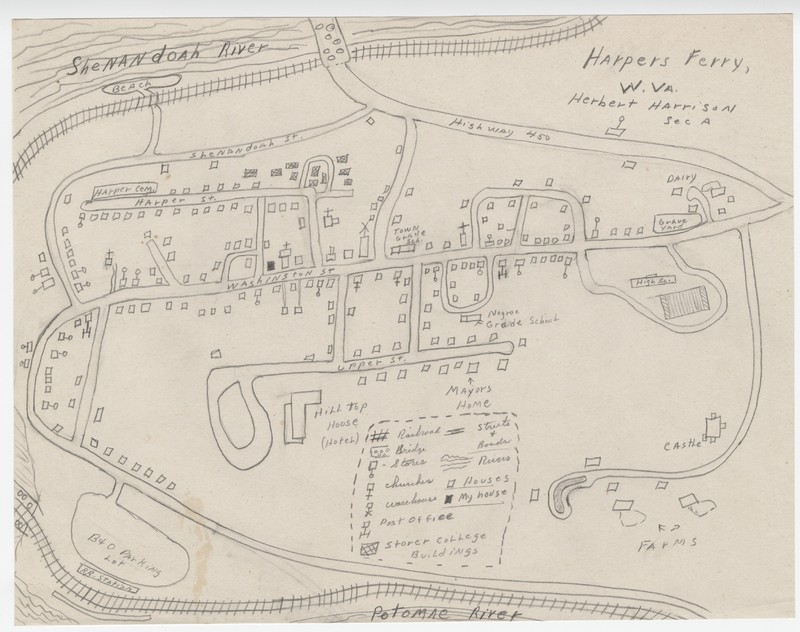 Shenandoah River
Beach
Harpers Ferry,
W. Va.
Herbert Harrison
Sec A
Highway 450
Shenandoah St.
Dairy
Harper Cem.
Harper St.
Grave
Yard
Town
Grade
Sch.
Washington St
High Sch.
Negroe
Grade School
Upper St.
Mayors
Home
Hill top
House
(Hotel)
Railroad
Streets
&
Roads
Bridge
- Stores
Rivers
Churches
Houses
warehouse
My house
Post Office
Storer College
Buildings
Castle
Farms
B&O Parking
Lot
RR. Station
Potomac River